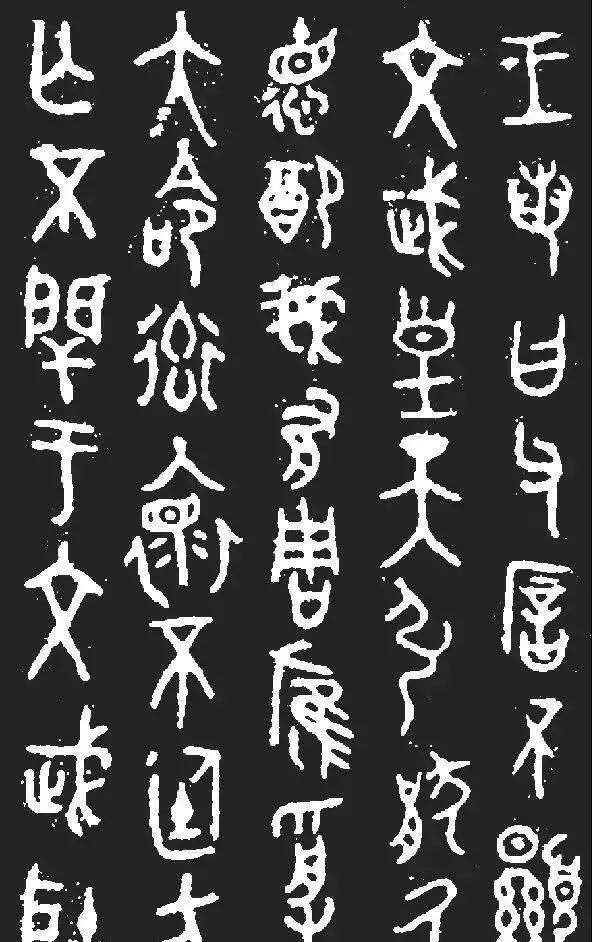 王若曰父厝不顯
文武皇天引猒厥
德配我有周膺受
大命率懷不廷方
亡不閈于文武耿